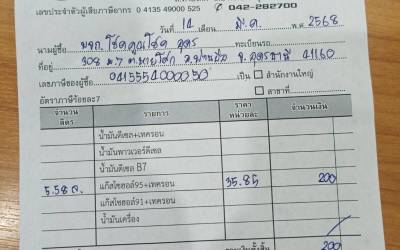 เลขประจำตัวผู้เสียภาษีอากร 0 4135 49000 525 042-282700
วันที่ 14 เดือน มี.ค. พ.ศ. 2568
นามผู้ซื้อ บจก. โชคคูณโชค อุดร ทะเบียนรถ
ที่อยู่ 308 ม.7 ต.หายโศก อ.บ้านผือ จ.อุดรธานี 41160
เลขภาษีของผู้ซื้อ 0415554000050 เป็น สำนักงานใหญ่
อัตราภาษีร้อยละ7 สาขาที่
จำนวนลิตร รายการ ราคาหน่วยละ จำนวนเงิน
น้ำมันดีเซล+เทครอน
น้ำมันพาวเวอร์ดีเซล
น้ำมันดีเซล B7
5.58 ล. แก๊สโซฮอล์95+เทครอน 35.85 200
แก๊สโซฮอล์91+เทครอน
น้ำมันเครื่อง
200